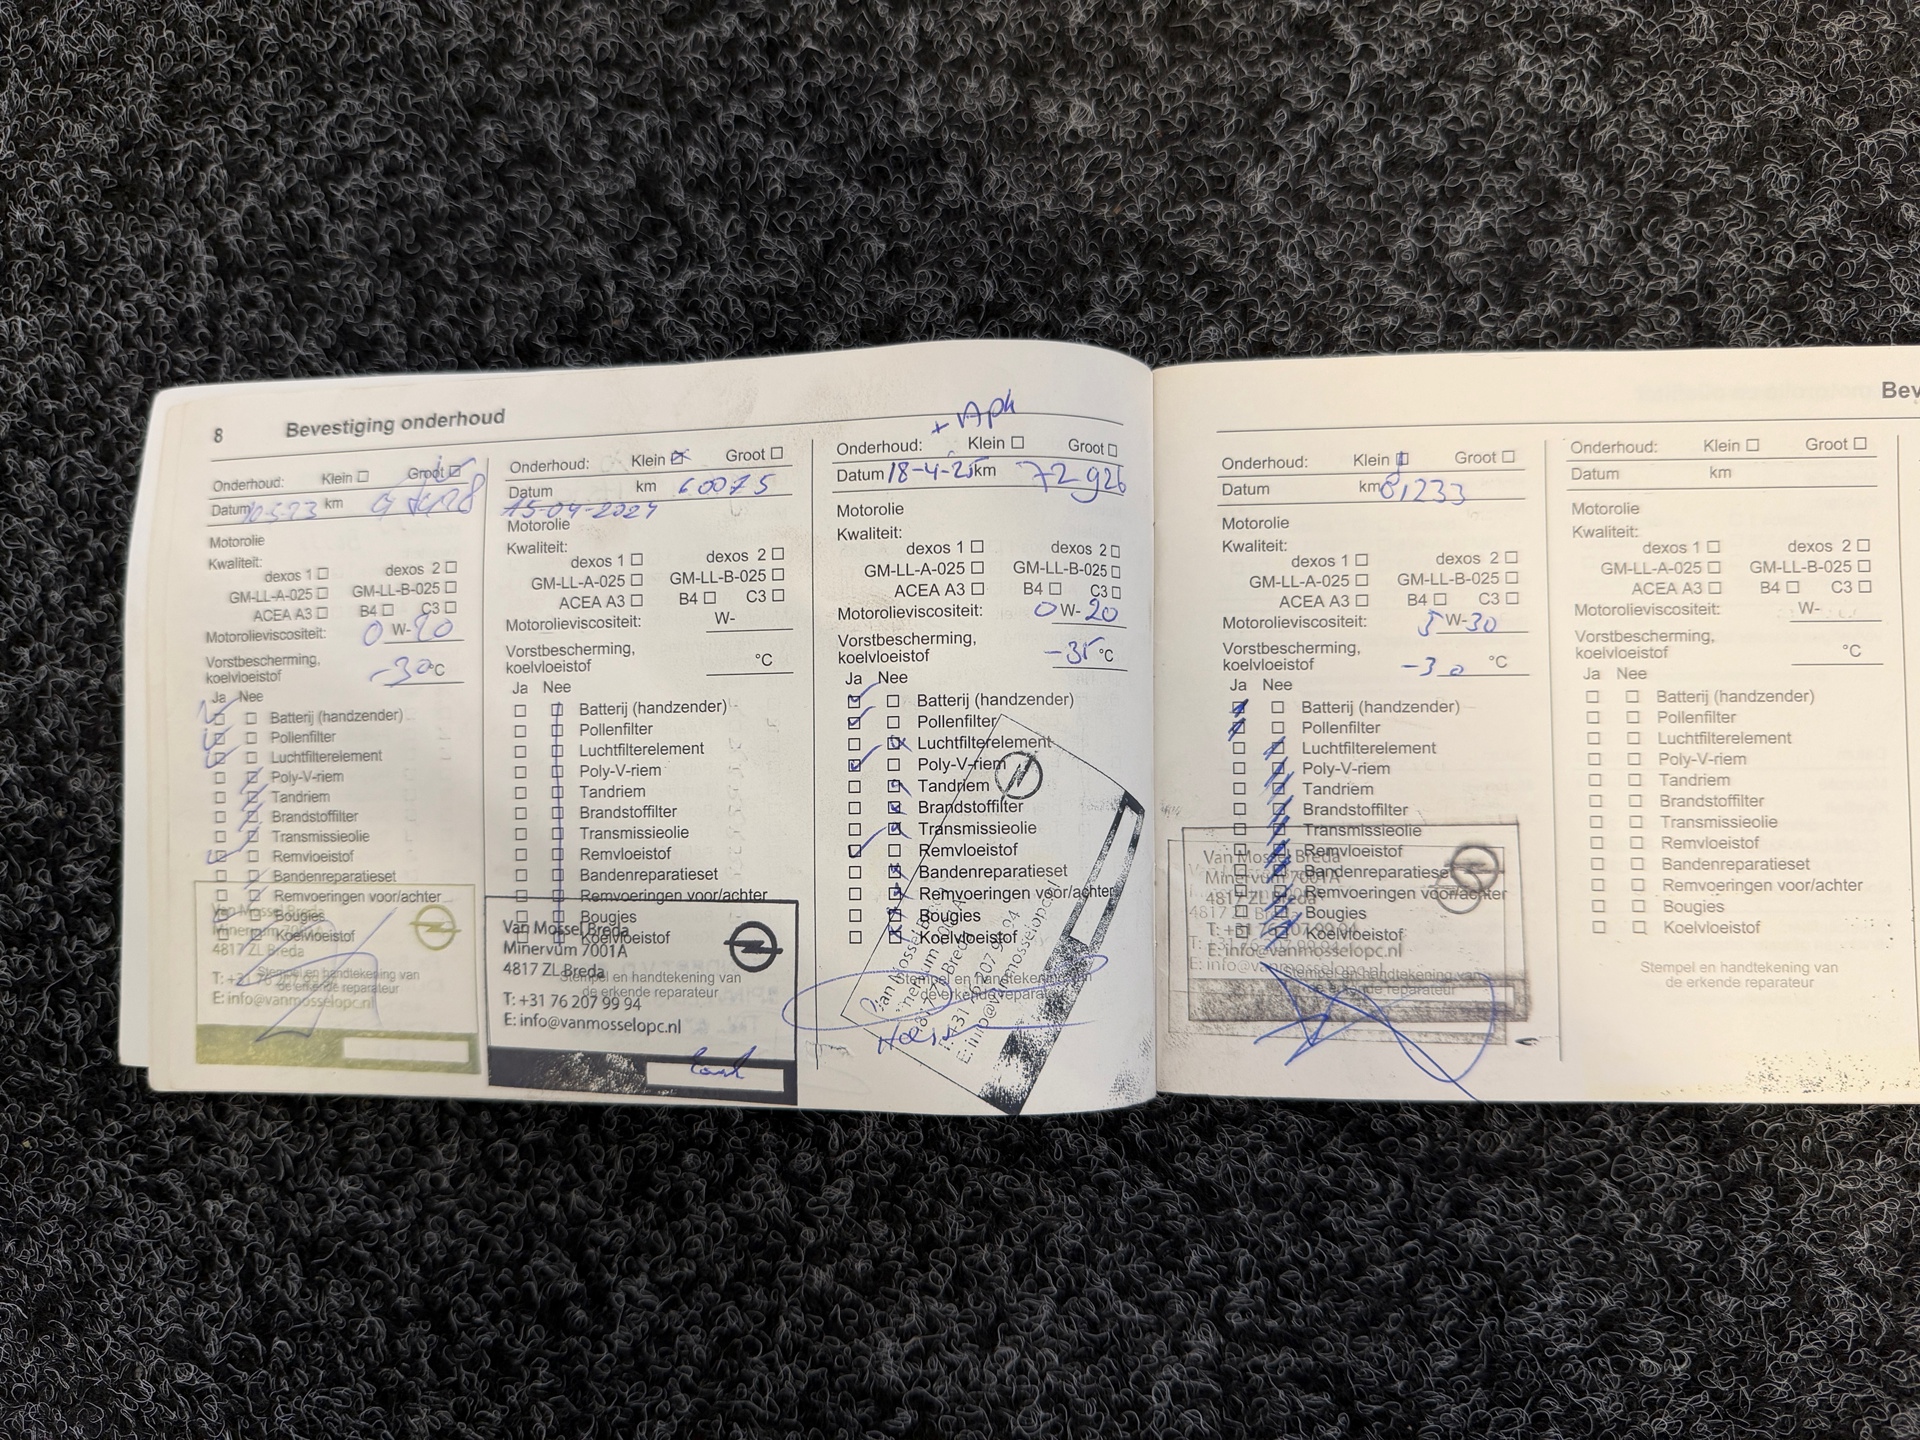 8 Bevestiging onderhoud
Onderhoud: Klein Groot
Datum km
Motorolie
Kwaliteit:
dexos 1 dexos 2
GM-LL-A-025 GM-LL-B-025
ACEA A3 B4 C3
Motorolieviscositeit: 0 W-20
Vorstbescherming,
koelvloeistof -30 °C
Ja Nee
Batterij (handzender)
Pollenfilter
Luchtfilterelement
Poly-V-riem
Tandriem
Brandstoffilter
Transmissieolie
Remvloeistof
Bandenreparatieset
Remvoeringen voor/achter
Bougies
Koelvloeistof
Stempel en handtekening van
de erkende reparateur
Van Mossel Breda
Minervum 7001A
4817 ZL Breda
T: +31 76
E: info@vanmosselopc.nl
Onderhoud: Klein Groot
Datum km 60075
15-04-2024
Motorolie
Kwaliteit:
dexos 1 dexos 2
GM-LL-A-025 GM-LL-B-025
ACEA A3 B4 C3
Motorolieviscositeit: W-
Vorstbescherming,
koelvloeistof °C
Ja Nee
Batterij (handzender)
Pollenfilter
Luchtfilterelement
Poly-V-riem
Tandriem
Brandstoffilter
Transmissieolie
Remvloeistof
Bandenreparatieset
Remvoeringen voor/achter
Bougies
Koelvloeistof
Stempel en handtekening van
de erkende reparateur
Van Mossel Breda
Minervum 7001A
4817 ZL Breda
T: +31 76 207 99 94
E: info@vanmosselopc.nl
+ Apk
Onderhoud: Klein Groot
Datum 18-4-25 km 72926
Motorolie
Kwaliteit:
dexos 1 dexos 2
GM-LL-A-025 GM-LL-B-025
ACEA A3 B4 C3
Motorolieviscositeit: 0 W-20
Vorstbescherming,
koelvloeistof -35 °C
Ja Nee
Batterij (handzender)
Pollenfilter
Luchtfilterelement
Poly-V-riem
Tandriem
Brandstoffilter
Transmissieolie
Remvloeistof
Bandenreparatieset
Remvoeringen voor/achter
Bougies
Koelvloeistof
Stempel en handtekening van
de erkende reparateur
Onderhoud: Klein Groot
Datum km 81233
Motorolie
Kwaliteit:
dexos 1 dexos 2
GM-LL-A-025 GM-LL-B-025
ACEA A3 B4 C3
Motorolieviscositeit: 5 W-30
Vorstbescherming,
koelvloeistof -30 °C
Ja Nee
Batterij (handzender)
Pollenfilter
Luchtfilterelement
Poly-V-riem
Tandriem
Brandstoffilter
Transmissieolie
Remvloeistof
Bandenreparatieset
Remvoeringen voor/achter
Bougies
Koelvloeistof
Stempel en handtekening van
de erkende reparateur
Van Mossel Breda
Minervum 7001A
4817 ZL Breda
T: +31 76 207 99 94
E: info@vanmosselopc.nl
Bev
Onderhoud: Klein Groot
Datum km
Motorolie
Kwaliteit:
dexos 1 dexos 2
GM-LL-A-025 GM-LL-B-025
ACEA A3 B4 C3
Motorolieviscositeit: W-
Vorstbescherming,
koelvloeistof °C
Ja Nee
Batterij (handzender)
Pollenfilter
Luchtfilterelement
Poly-V-riem
Tandriem
Brandstoffilter
Transmissieolie
Remvloeistof
Bandenreparatieset
Remvoeringen voor/achter
Bougies
Koelvloeistof
Stempel en handtekening van
de erkende reparateur